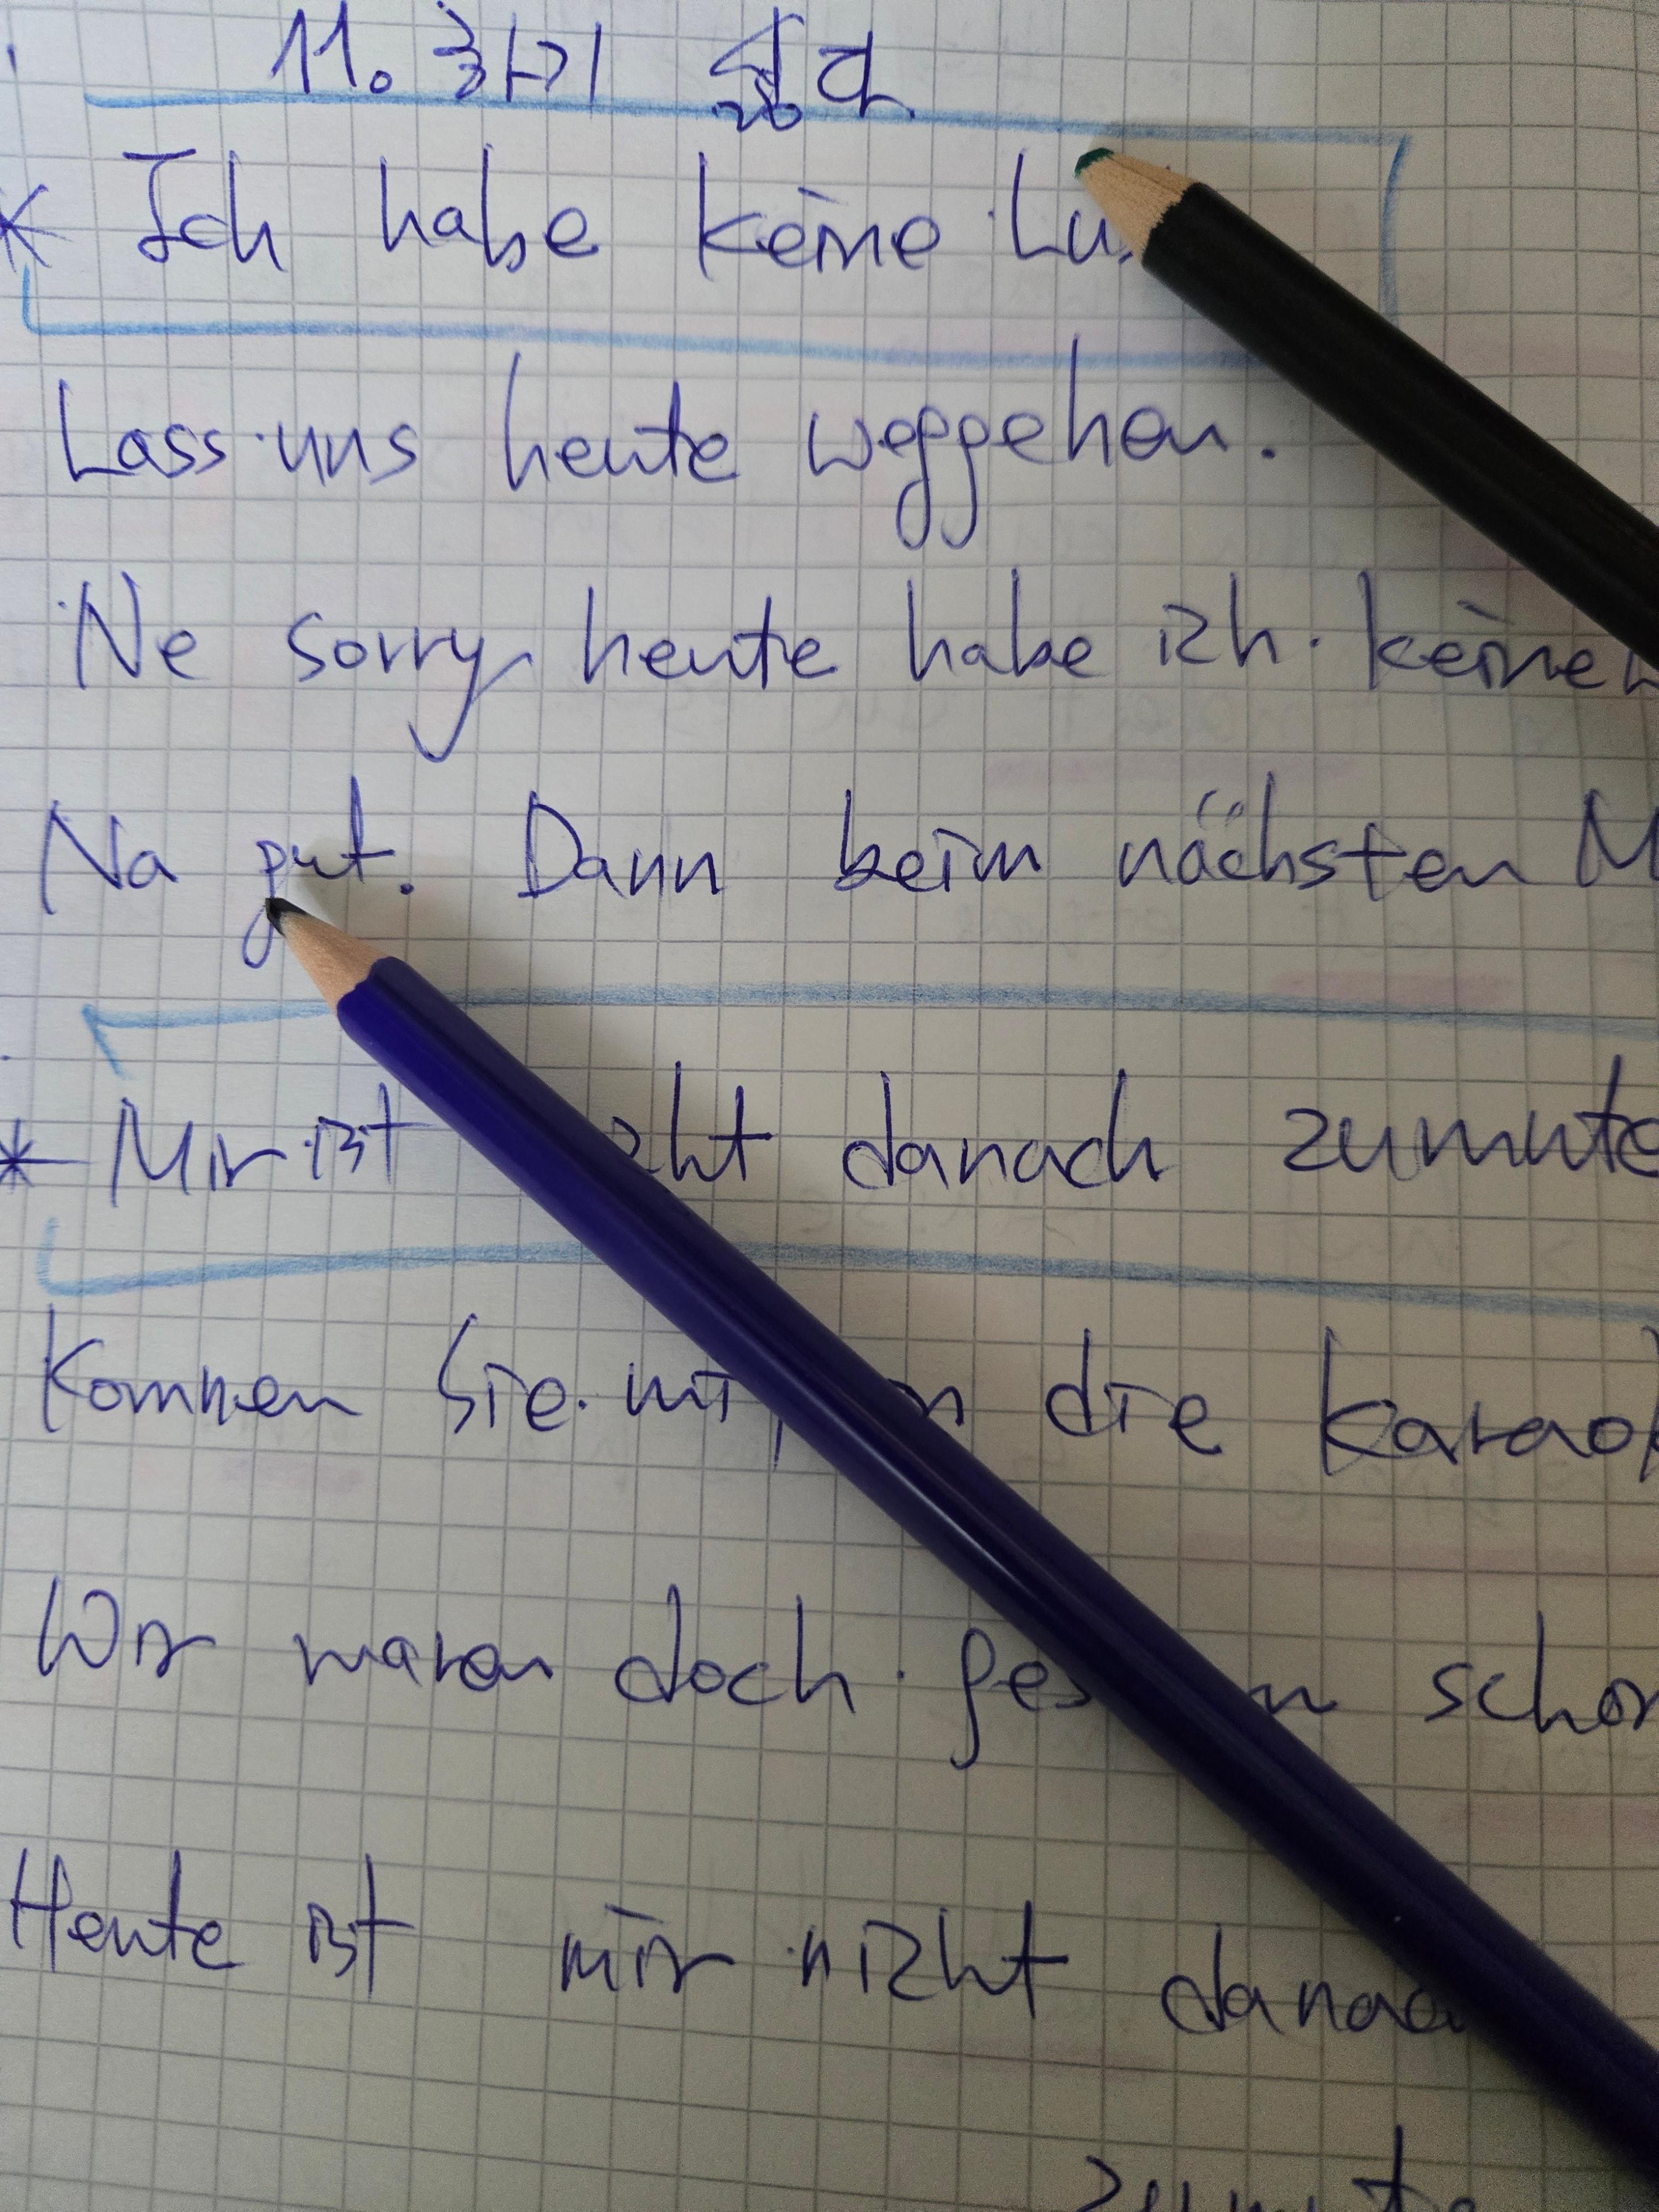 11. 하기 싫다.
* Ich habe keine Lu
Lass uns heute weggehen.
Ne sorry heute habe ich keine
Na gut. Dann beim nächsten M
* Mir ist cht danach zumute
Kommen Sie mit in die Karaok
Wir waren doch ges n schon
Heute ist mir nicht danac
zumute